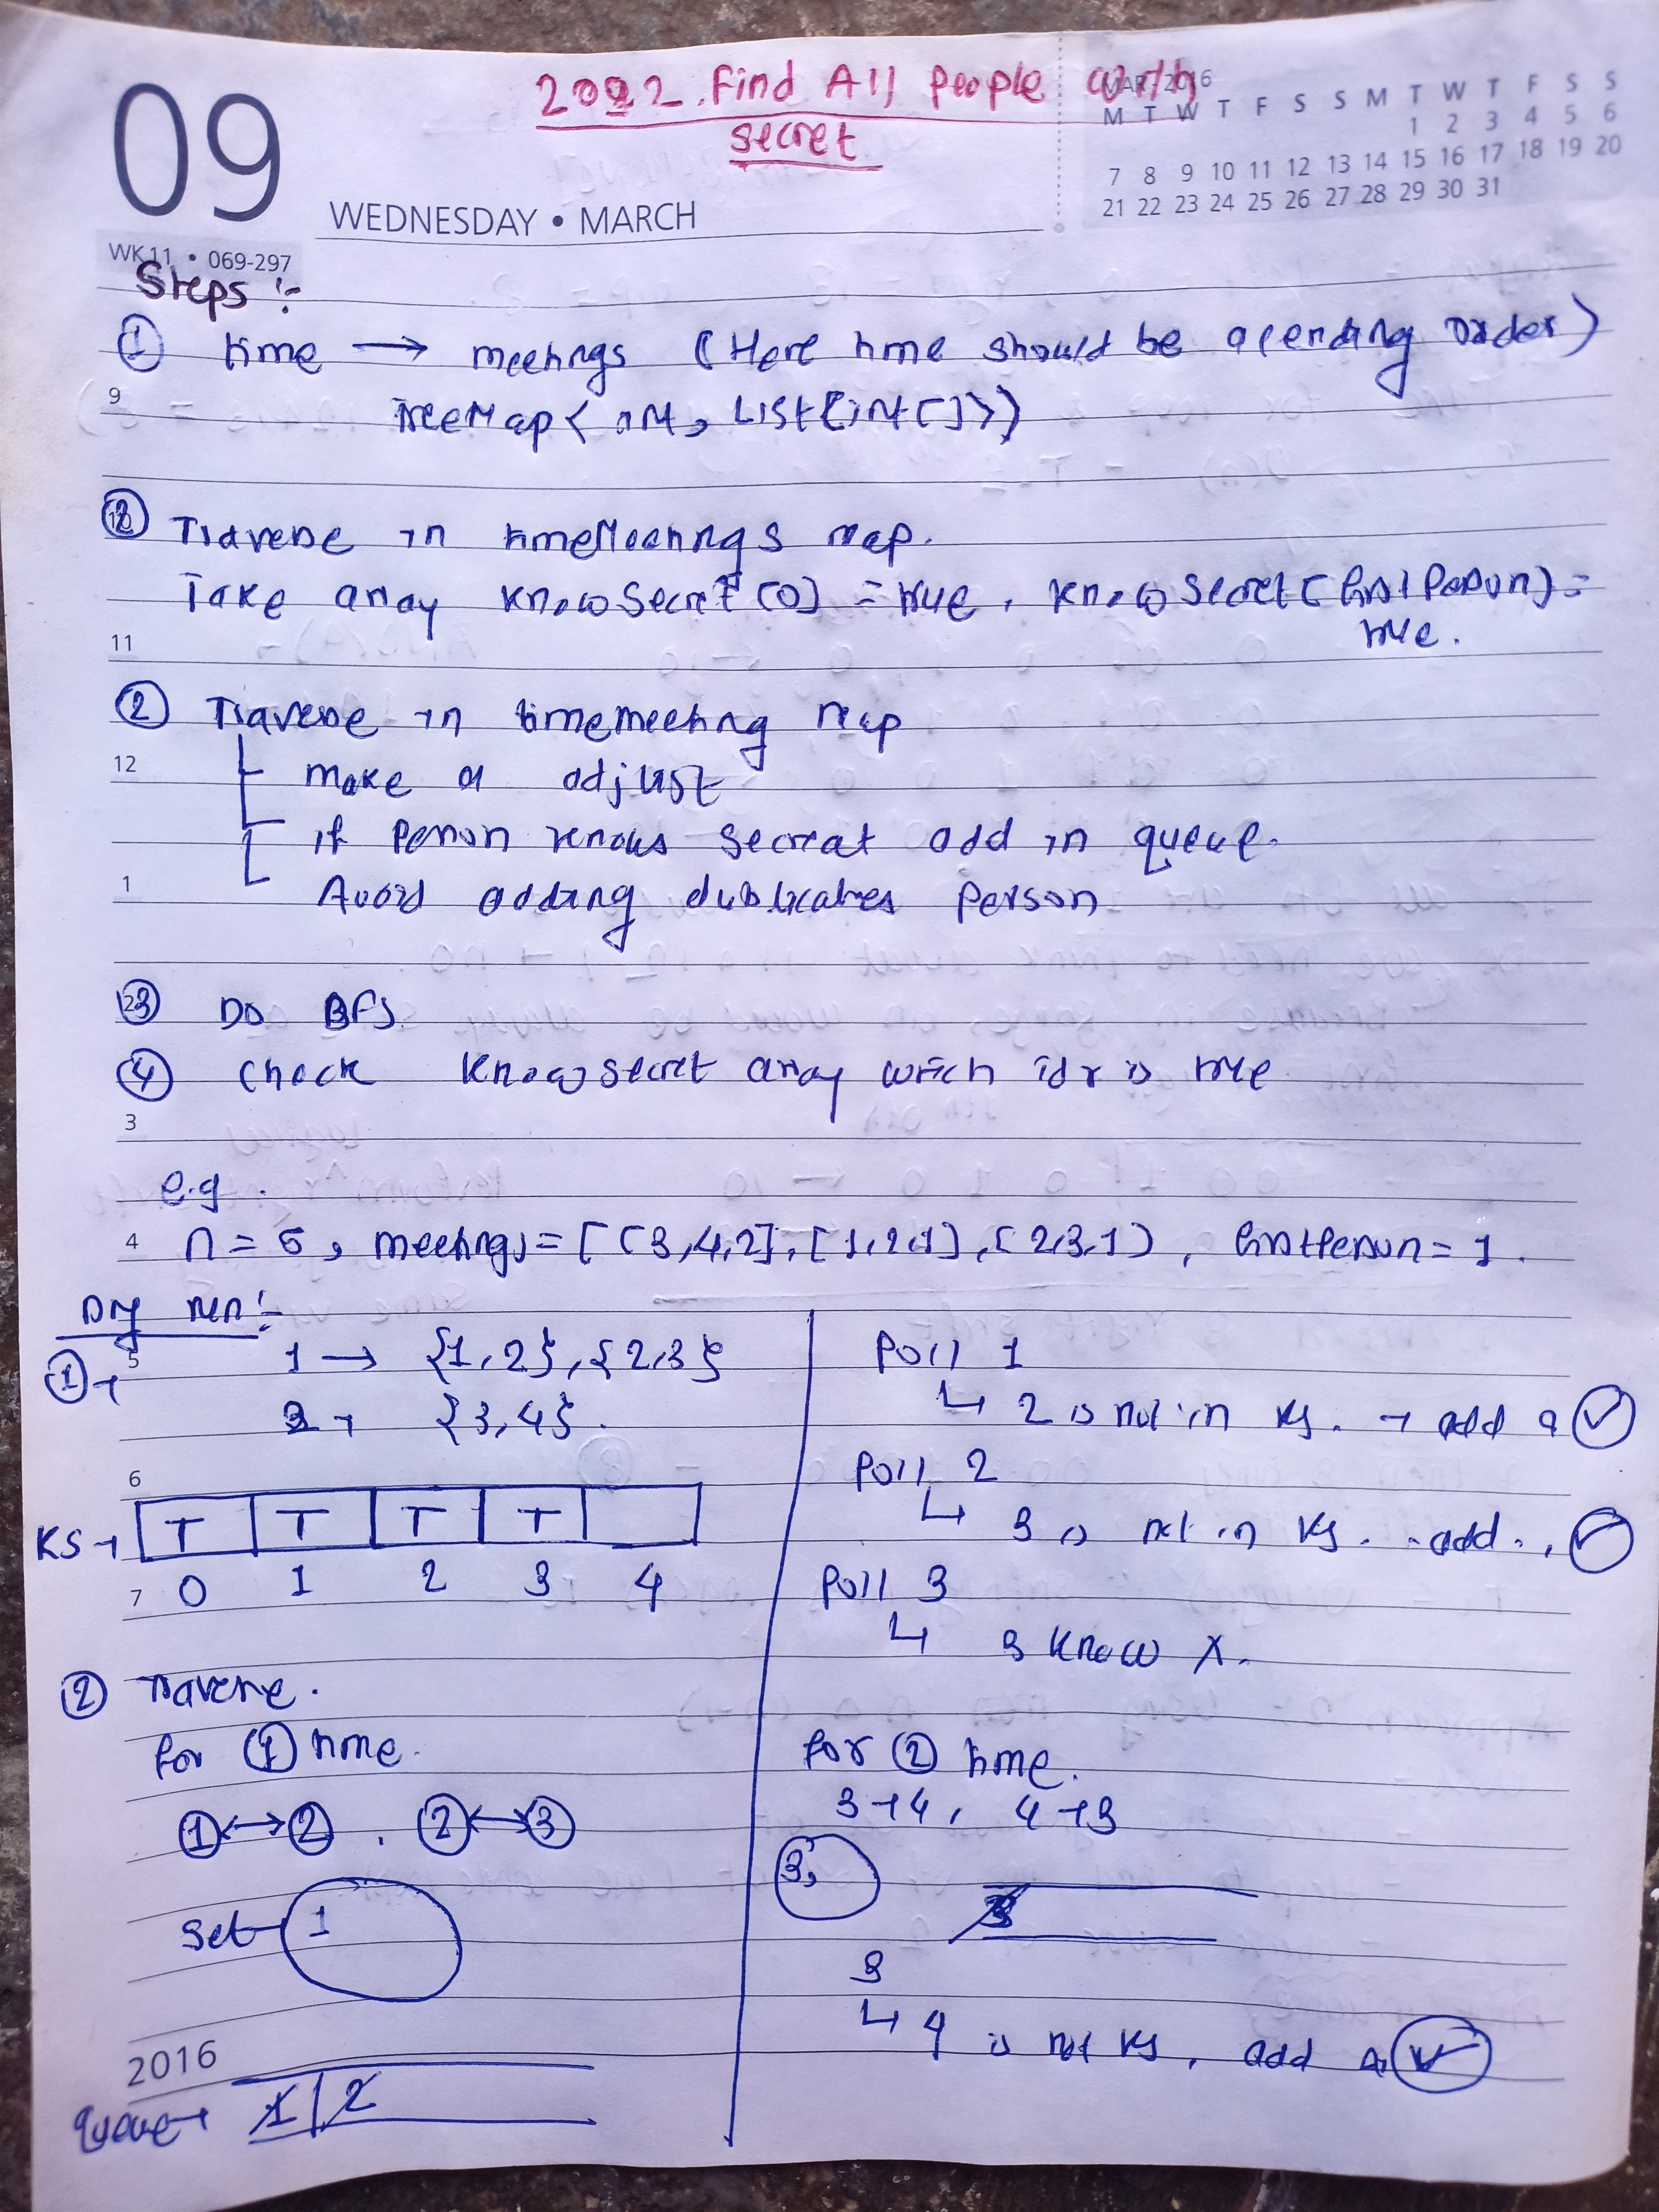 2092. Find All People with
secret
09
WEDNESDAY • MARCH
WK 11 • 069-297
MAR 2016
M T W T F S S M T W T F S S
1 2 3 4 5 6
7 8 9 10 11 12 13 14 15 16 17 18 19 20
21 22 23 24 25 26 27 28 29 30 31
Steps :-
① time → meetings (Here time should be acending order)
9
TreeMap< int, List{int[]>)
② Traverse in timeMeetings map.
Take array knowSecret[0] = true, knowSecret[firstPerson] =
true.
11
② Traverse in timemeeting map
12
make a adjlist
if Person knows secreat add in queue.
1
Avoid adding dublicates Person
③ Do BFS.
④ Check knowsecret array which idx is true
3
e.g.
4
n = 5, meetings = [[3,4,2], [1,2,1], [2,3,1), firstPerson = 1.
Dry run :-
5
① → 1 → {1,2}, {2,3}
2 → {3,4}.
6
KS → T T T T
7
0 1 2 3 4
② Traverse.
for ① time.
① ↔ ② . ② ↔ ③
set 1
2016
queue → 1 | 2
Poll 1
↳ 2 is not in KS. → add ✓
Poll 2
↳ 3 is not in KS. add ✓
Poll 3
↳ 3 know X.
for ② time.
3 → 4, 4 → 3
3,
3
3
↳ 4 is not KS, add ✓